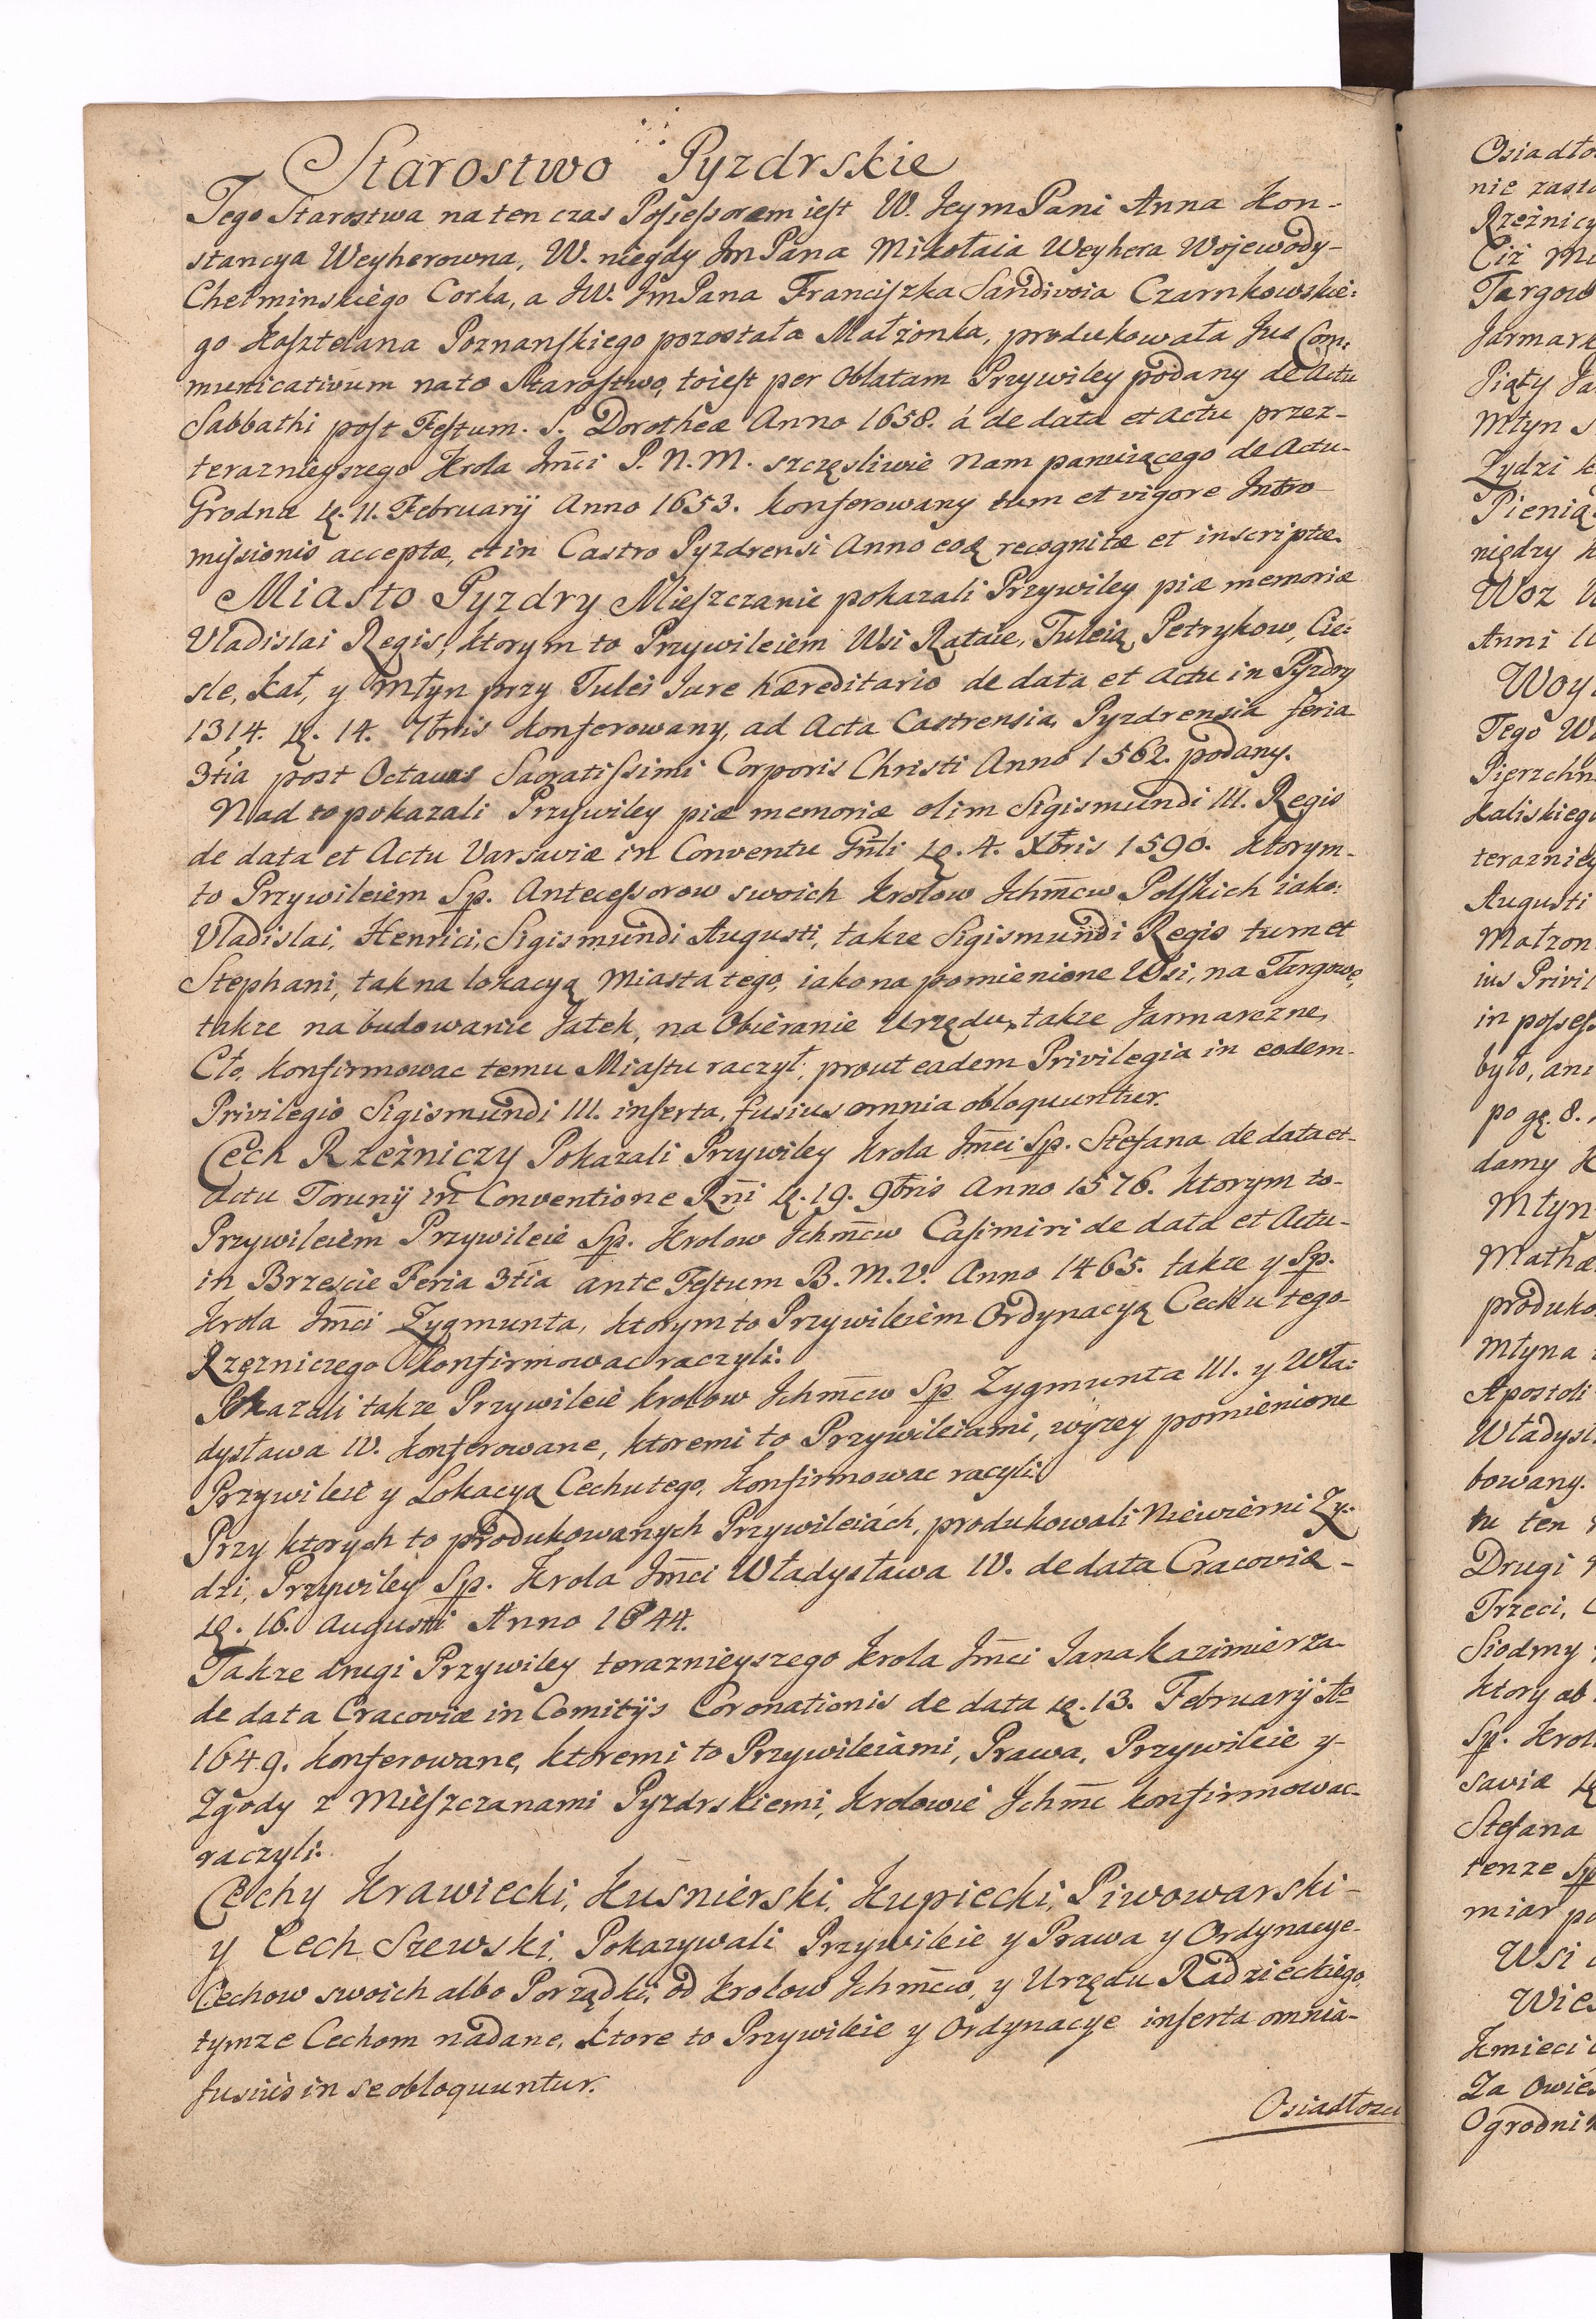 Starostwo Pyzdrskie
Tego Starostwa na ten czas Possessorem iest W. Jeym Pani Anna Kon-
stancya Weyherowna, W. niegdy Jm Pana Mikołaia Weyhera Wojewody-
Chełminskiego Corka, a JW. Jm Pana Franciszka Sandivoia Czarnkowskie:
go Kasztelana Poznanskiego pozostała Małżonka, produkowała Jus Com:
municativum na to Starostwo, to iest per Oblatam Przywiley podany de Actu
Sabbathi post Festum. S. Dorotheæ Anno 1658. á de data et actu przez-
teraznieyszego Krola Jmci P. N. M. szczęsliwie Nam panuiącego de Actu-
Grodnæ 11. Februarij Anno 1653. konferowany tum et vigore Intro-
missionis acceptæ, et in Castro Pyzdrensi Anno eoq recognitæ et inscriptæ.
Miasto Pyzdry Mieszczanie pokazali Przywiley piæ memoriæ
Vladislai Regis, ktorym to Przywileiem Wsi Rataie, Tuleią, Petrykow, Cie:
sle, Kąt, y Młyn przy Tulei Jure hæreditario de data et actu in Pyzdry
1314. 14. 7bris konferowany, ad Acta Castrensia Pyzdrensia feria
3tia post Octavas Sacratissimi Corporis Christi Anno 1562. podany.
Nad to pokazali Przywiley piæ memoriæ olim Sigismundi III. Regis
de data et Actu Varsaviæ in Conventu Gnli 4. Xbris 1590. Ktorym-
to Przywileiem Sp. Antecessorow swoich Krolow Ichmcw Polskich iako:
Vladislai, Henrici, Sigismundi Augusti, takze Sigismundi Regis tum et
Stephani, tak na lokacyą Miasta tego, iako na pomienione Wsi, na Targowe,
takze na budowanie Jatek, na Obieranie Urzędu, takze Jarmarczne,
Cło, konfirmowac temu Miastu raczył, prout eadem Privilegia in eodem-
Privilegio Sigismundi III. inserta, fusius omnia obloquuntur.
Cech Rzeźniczy Pokazali Przywiley Krola Jmci Sp. Stefana de data et-
actu Torunij in Conventione Rni 19. 9bris Anno 1576. ktorym to-
Przywileiem Przywileie Sp. Krolow Ichmcw Casimiri de data et Actu-
in Brzescie Feria 3tia ante Festum B. M. V. Anno 1465. takze y Sp.
Krola Jmci Zygmunta, ktorym to Przywileiem Ordynacyą Cechu tego-
Rzezniczego konfirmowac raczyli.
Pokazali takze Przywileie Krolow Ichmcw Sp Zygmunta III. y Wła:
dysława IV. konferowane, ktoremi to Przywileiami, wyzey pomienione
Przywileie y Lokacyą Cechu tego, konfirmowac racyli.
Przy ktorych to produkowanych Przywileiách, produkowali Niewierni Zy:
dzi, Przywiley Sp. Krola Jmci Władysława IV. de data Cracoviæ-
16. Augusti Anno 1644.
Takze drugi Przywiley teraznieyszego Krola Jmci Jana Kazimierza-
de data Cracoviæ in Comitijs Coronationis de data 13. Februarij Ao
1649. konferowane, ktoremi to Przywileiami, Prawa, Przywileie y-
Zgody z Mieszczanami Pyzdrskiemi, Krolowie Ichmc konfirmowac-
raczyli.
Cechy Krawiecki, Kuśnierski, Kupiecki, Piwowarski-
y Cech Szewski, Pokazywali Przywileie y Prawa y Ordynacye-
Cechow swoich albo Porządki, od Krolow Ichmcw, y Urzędu Radzieckiego,
tymze Cechom nadane, ktore to Przywileie y Ordynacye inserta omnia-
fusius in se obloquuntur.
Osiadłosci
Osiadło
nie zasta
Rzeźnicy
Ciż Mi
Targow
Jarmark
Piąty Ja
Młyn S
Zydzi k
Pienią
niędzy
Woz
Anni
Woy
Tego W
Pierzchn
Kaliskieg
teraznie
Augusti
Małzon
ius Privil
in posses
było, ani
po 8.
damy K
Młyn
Mathæ
produko
Młyna
Apostoli
Władysł
bowany.
tu ten
Drugi
Trzeci,
Siodmy
ktory ab
Sp. Krol
saviæ
Stefana
tenze Sp
miar po
Wsi
Wies
Kmieci
Za Owies
Ogrodni